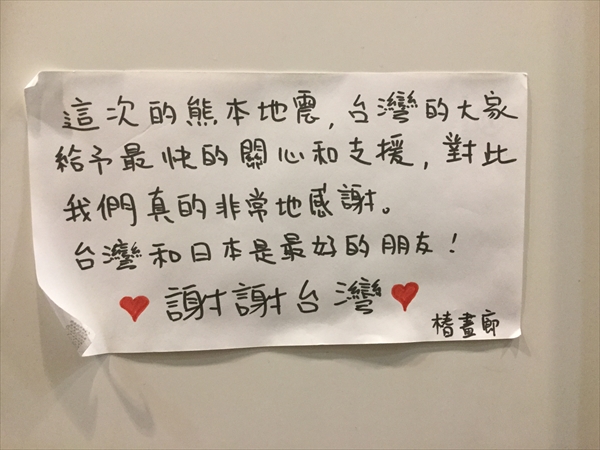 這次的熊本地震,台灣的大家
給予最快的關心和支援,對此
我們真的非常地感謝。
台灣和日本是最好的朋友!
謝謝台灣
椿畫廊